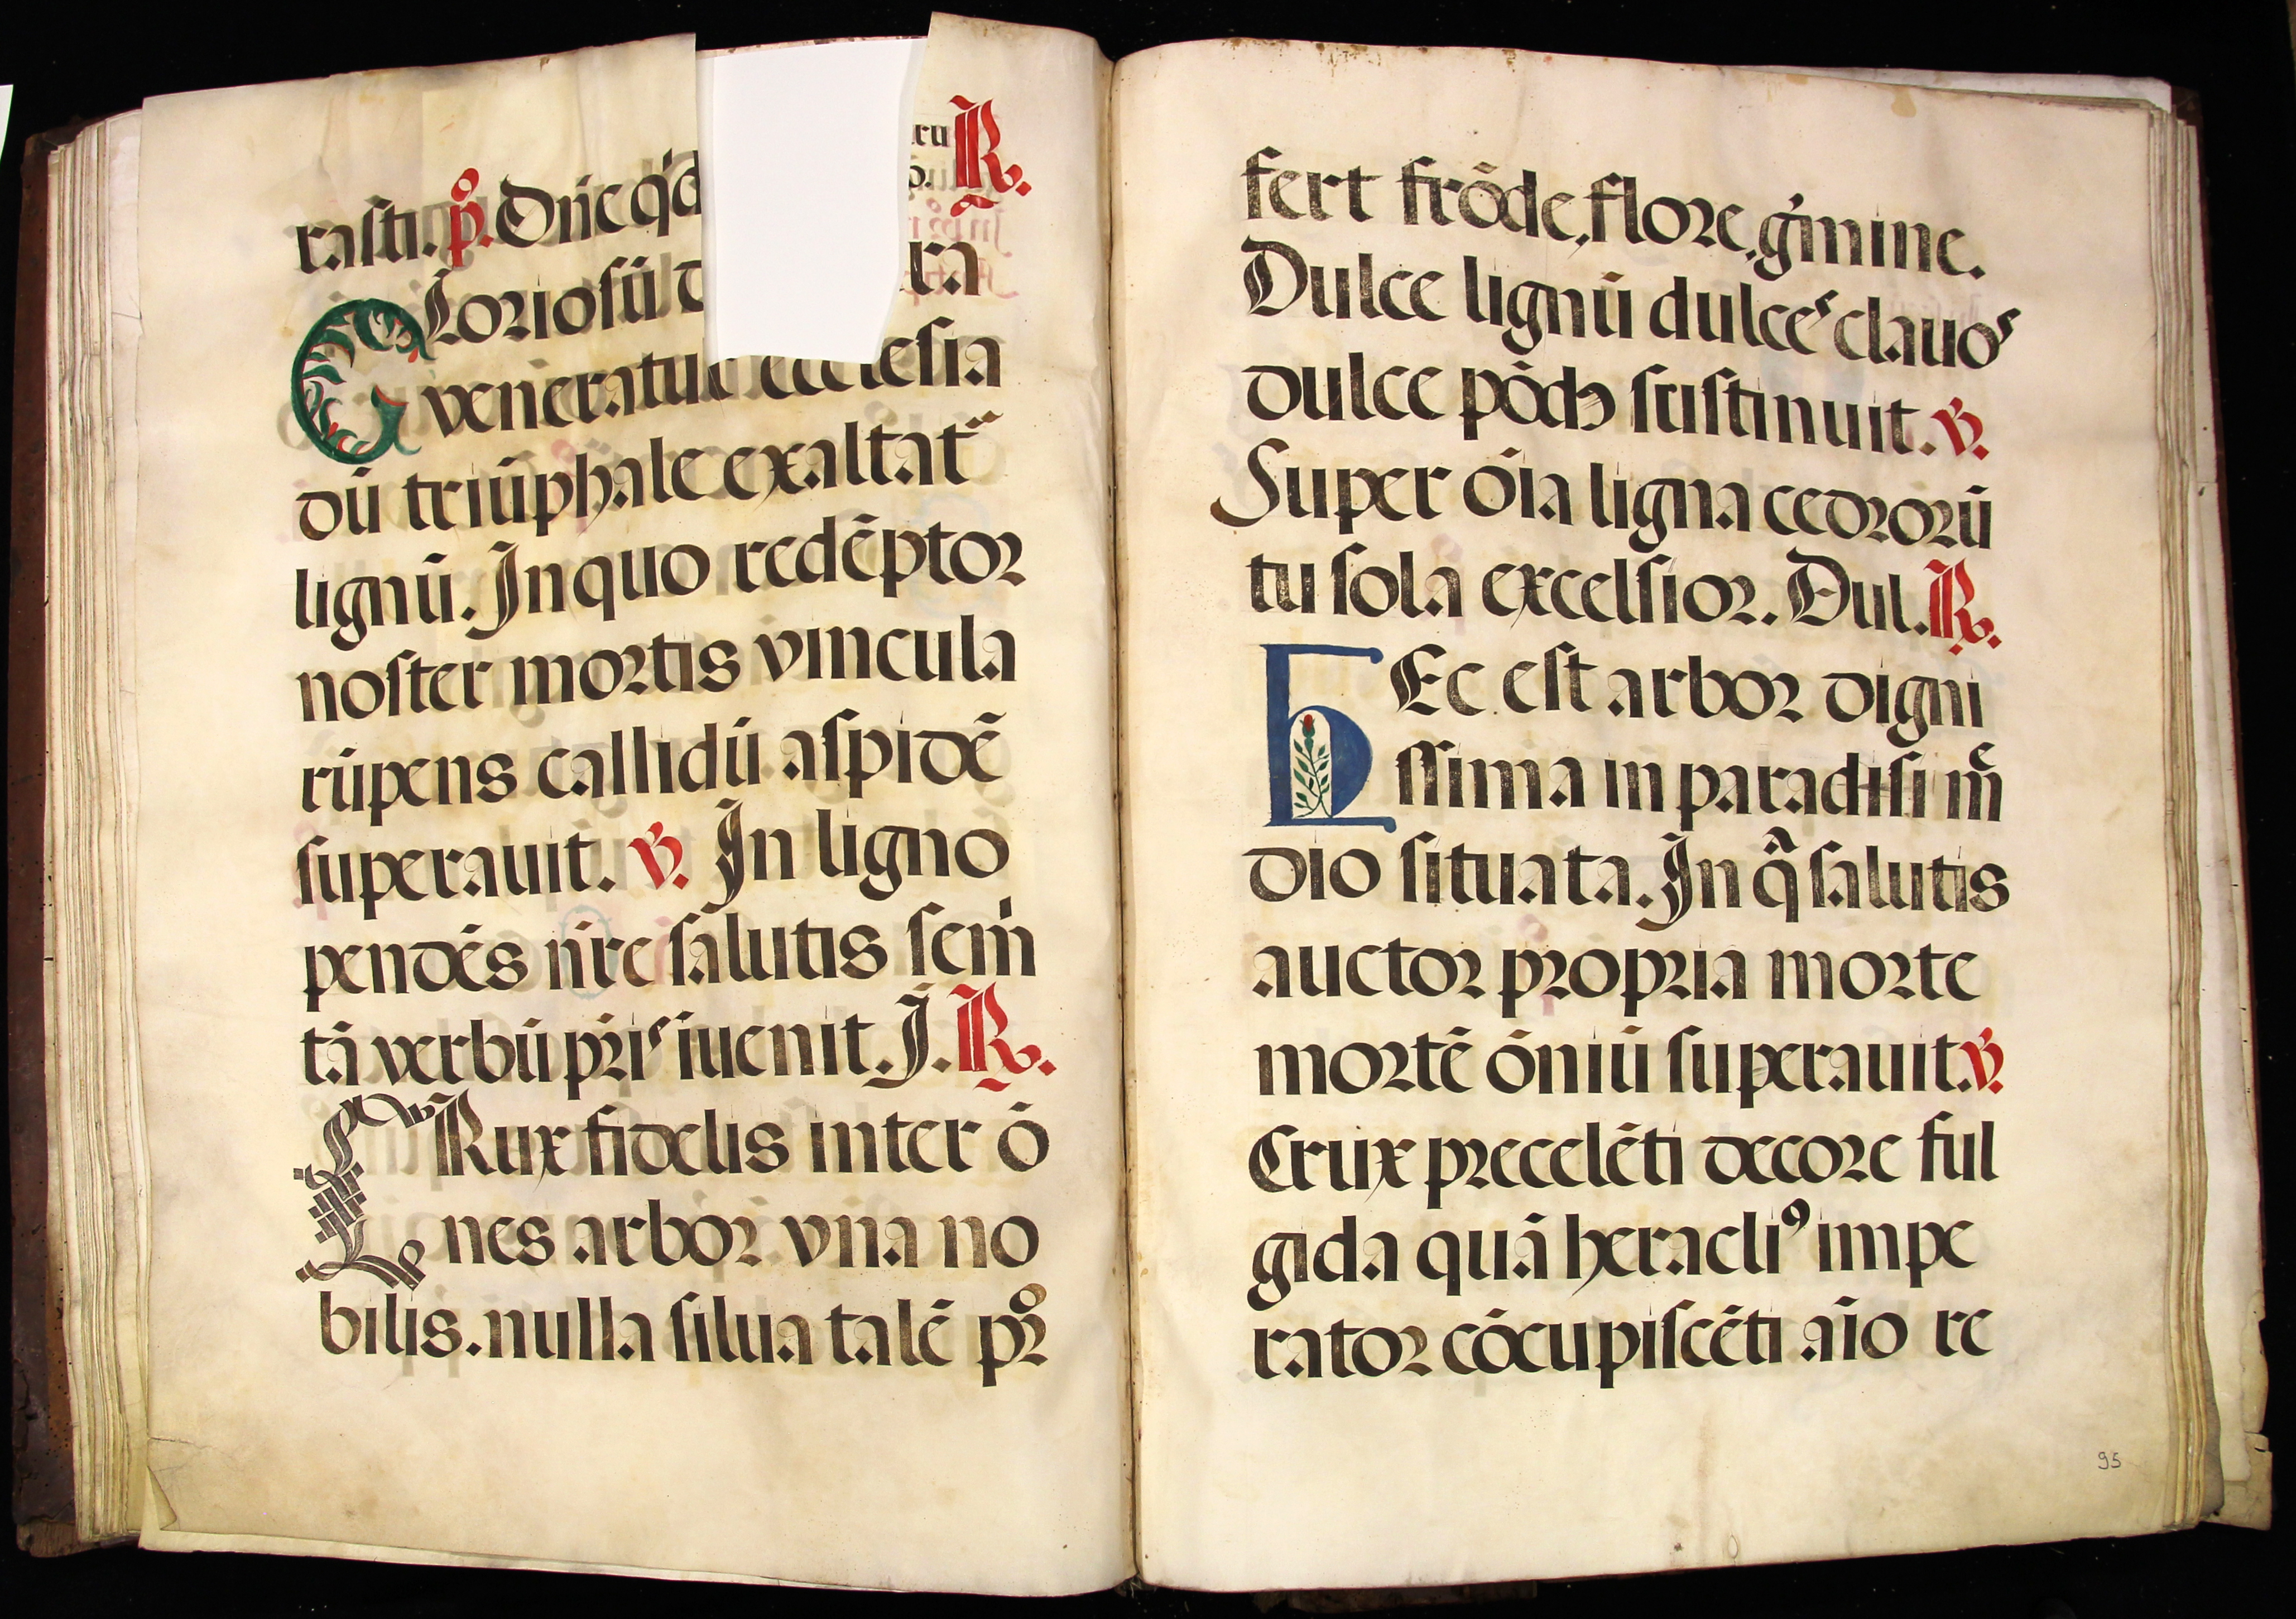 rasti. p̊. Dñe q̇d ru ℟.
p.
Gloriosũ ra
veneratur ecclesia
dũ triũphale exaltat᷑
lignũ. In quo redẽptor
noster mortis vincula
rũpens callidũ aspidẽ
superauit. ℣. In ligno
pendẽs ñre salutis sem̍
tã verbũ pr̃is iuenit. I. ℟.
CRux fidelis inter õ
nes arbor vna no
bilis. nulla silua talẽ pꝛo
fert frõde, flore, g̍mine.
Dulce lignũ dulces clauos
dulce põdꝰ sustinuit. ℣.
Super õia ligna cedrorũ
tu sola excelsior. Dul. ℟.
HEc est arbor digni
ssima in paradisi m̃
dio situata. In q̃ salutis
auctor propria morte
mortẽ õniũ superauit. ℣.
Crux precelẽti decore ful
gida quã heracliꝰ impe
rator cõcupiscẽti aĩo re
95